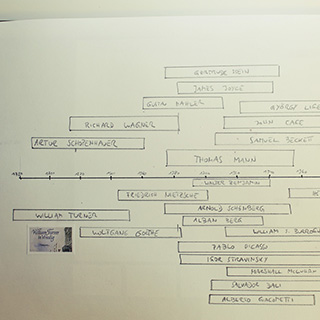 GERTRUDE STEIN
JAMES JOYCE
GUSTAV MAHLER
GYÖRGY LIGE
RICHARD WAGNER
JOHN CAGE
ARTUR SCHOPENHAUER
SAMUEL BECKETT
THOMAS MANN
WALTER BENJAMIN
FRIEDRICH NIETZSCHE
ARNOLD SCHÖNBERG
WILLIAM TURNER
ALBAN BERG
WOLFGANG GOETHE
WILLIAM S. BURROUGH
PABLO PICASSO
IGOR STRAVINSKY
MARSHALL MCLUHAN
SALVADOR DALI
ALBERTO GIACOMETTI